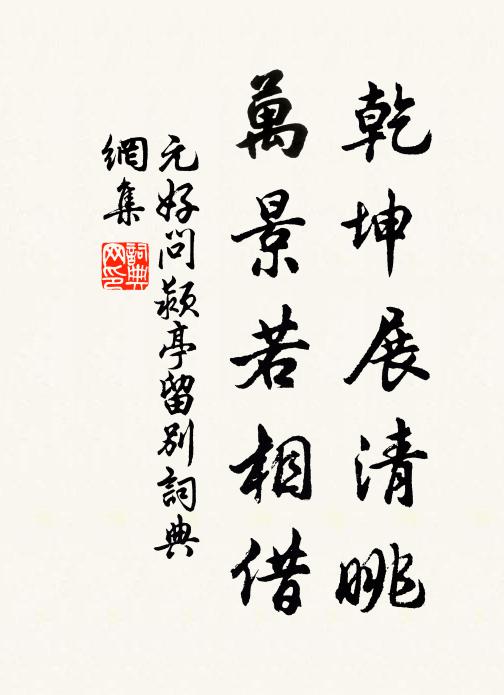 乾坤展清眺
萬景若相借
元好問潁亭留別詞典
網集
詞典
网印